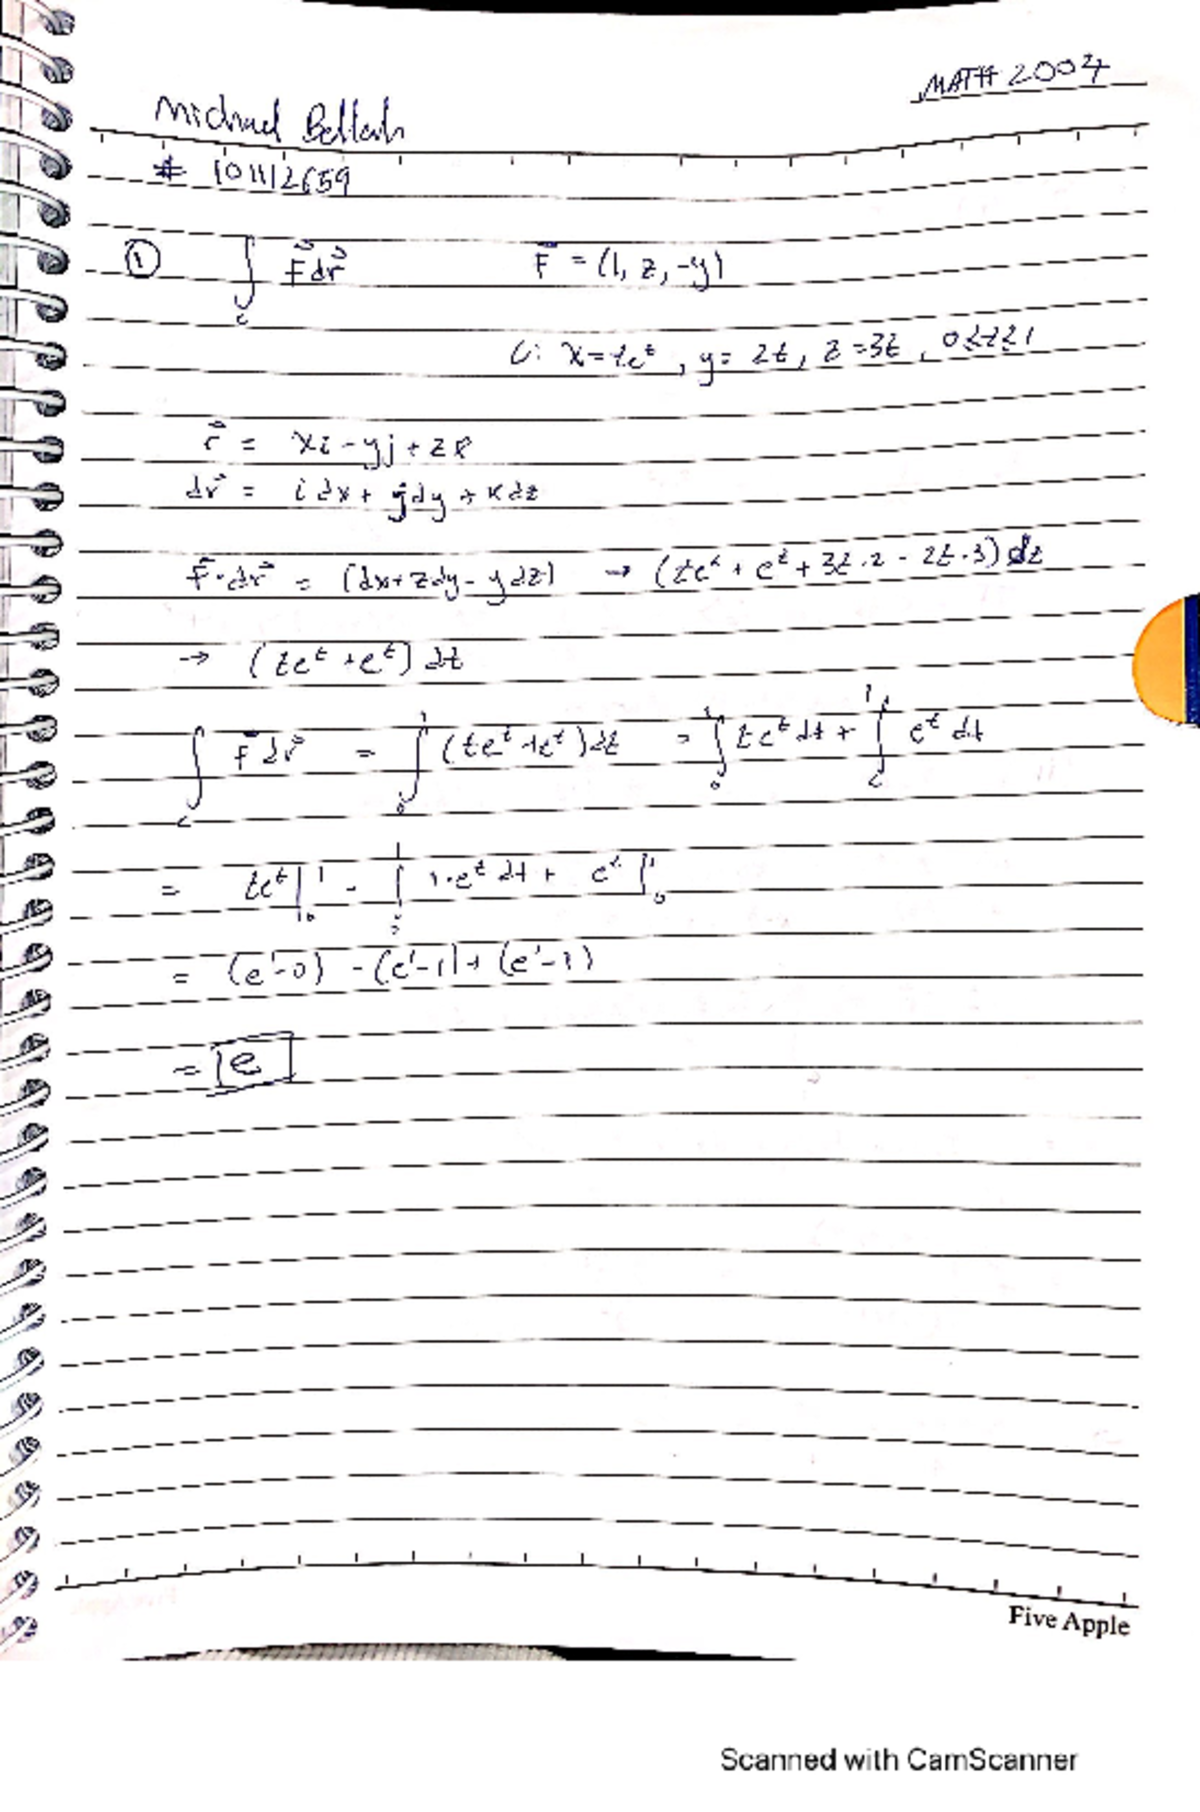 MATH 2004
Michael
# 101112659
① ∫_c F⃗ dr⃗ F⃗ = (1, z, -y)
C: x = te^t, y = 2t, z = 3t, 0≤t≤1
r⃗ = xi - yj + zk
dr⃗ = i dx + j dy + k dz
F⃗ · dr⃗ = (dx + z dy - y dz) → (te^t + e^t + 3t·2 - 2t·3) dt
→ (te^t + e^t) dt
∫_c F⃗ dr⃗ = ∫_0^1 (te^t + e^t) dt = ∫_0^1 te^t dt + ∫_0^1 e^t dt
= te^t |_0^1 - ∫_0^1 1·e^t dt + e^t |_0^1
= (e^1 - 0) - (e^1 - 1) + (e^1 - 1)
= e
Five Apple
Scanned with CamScanner